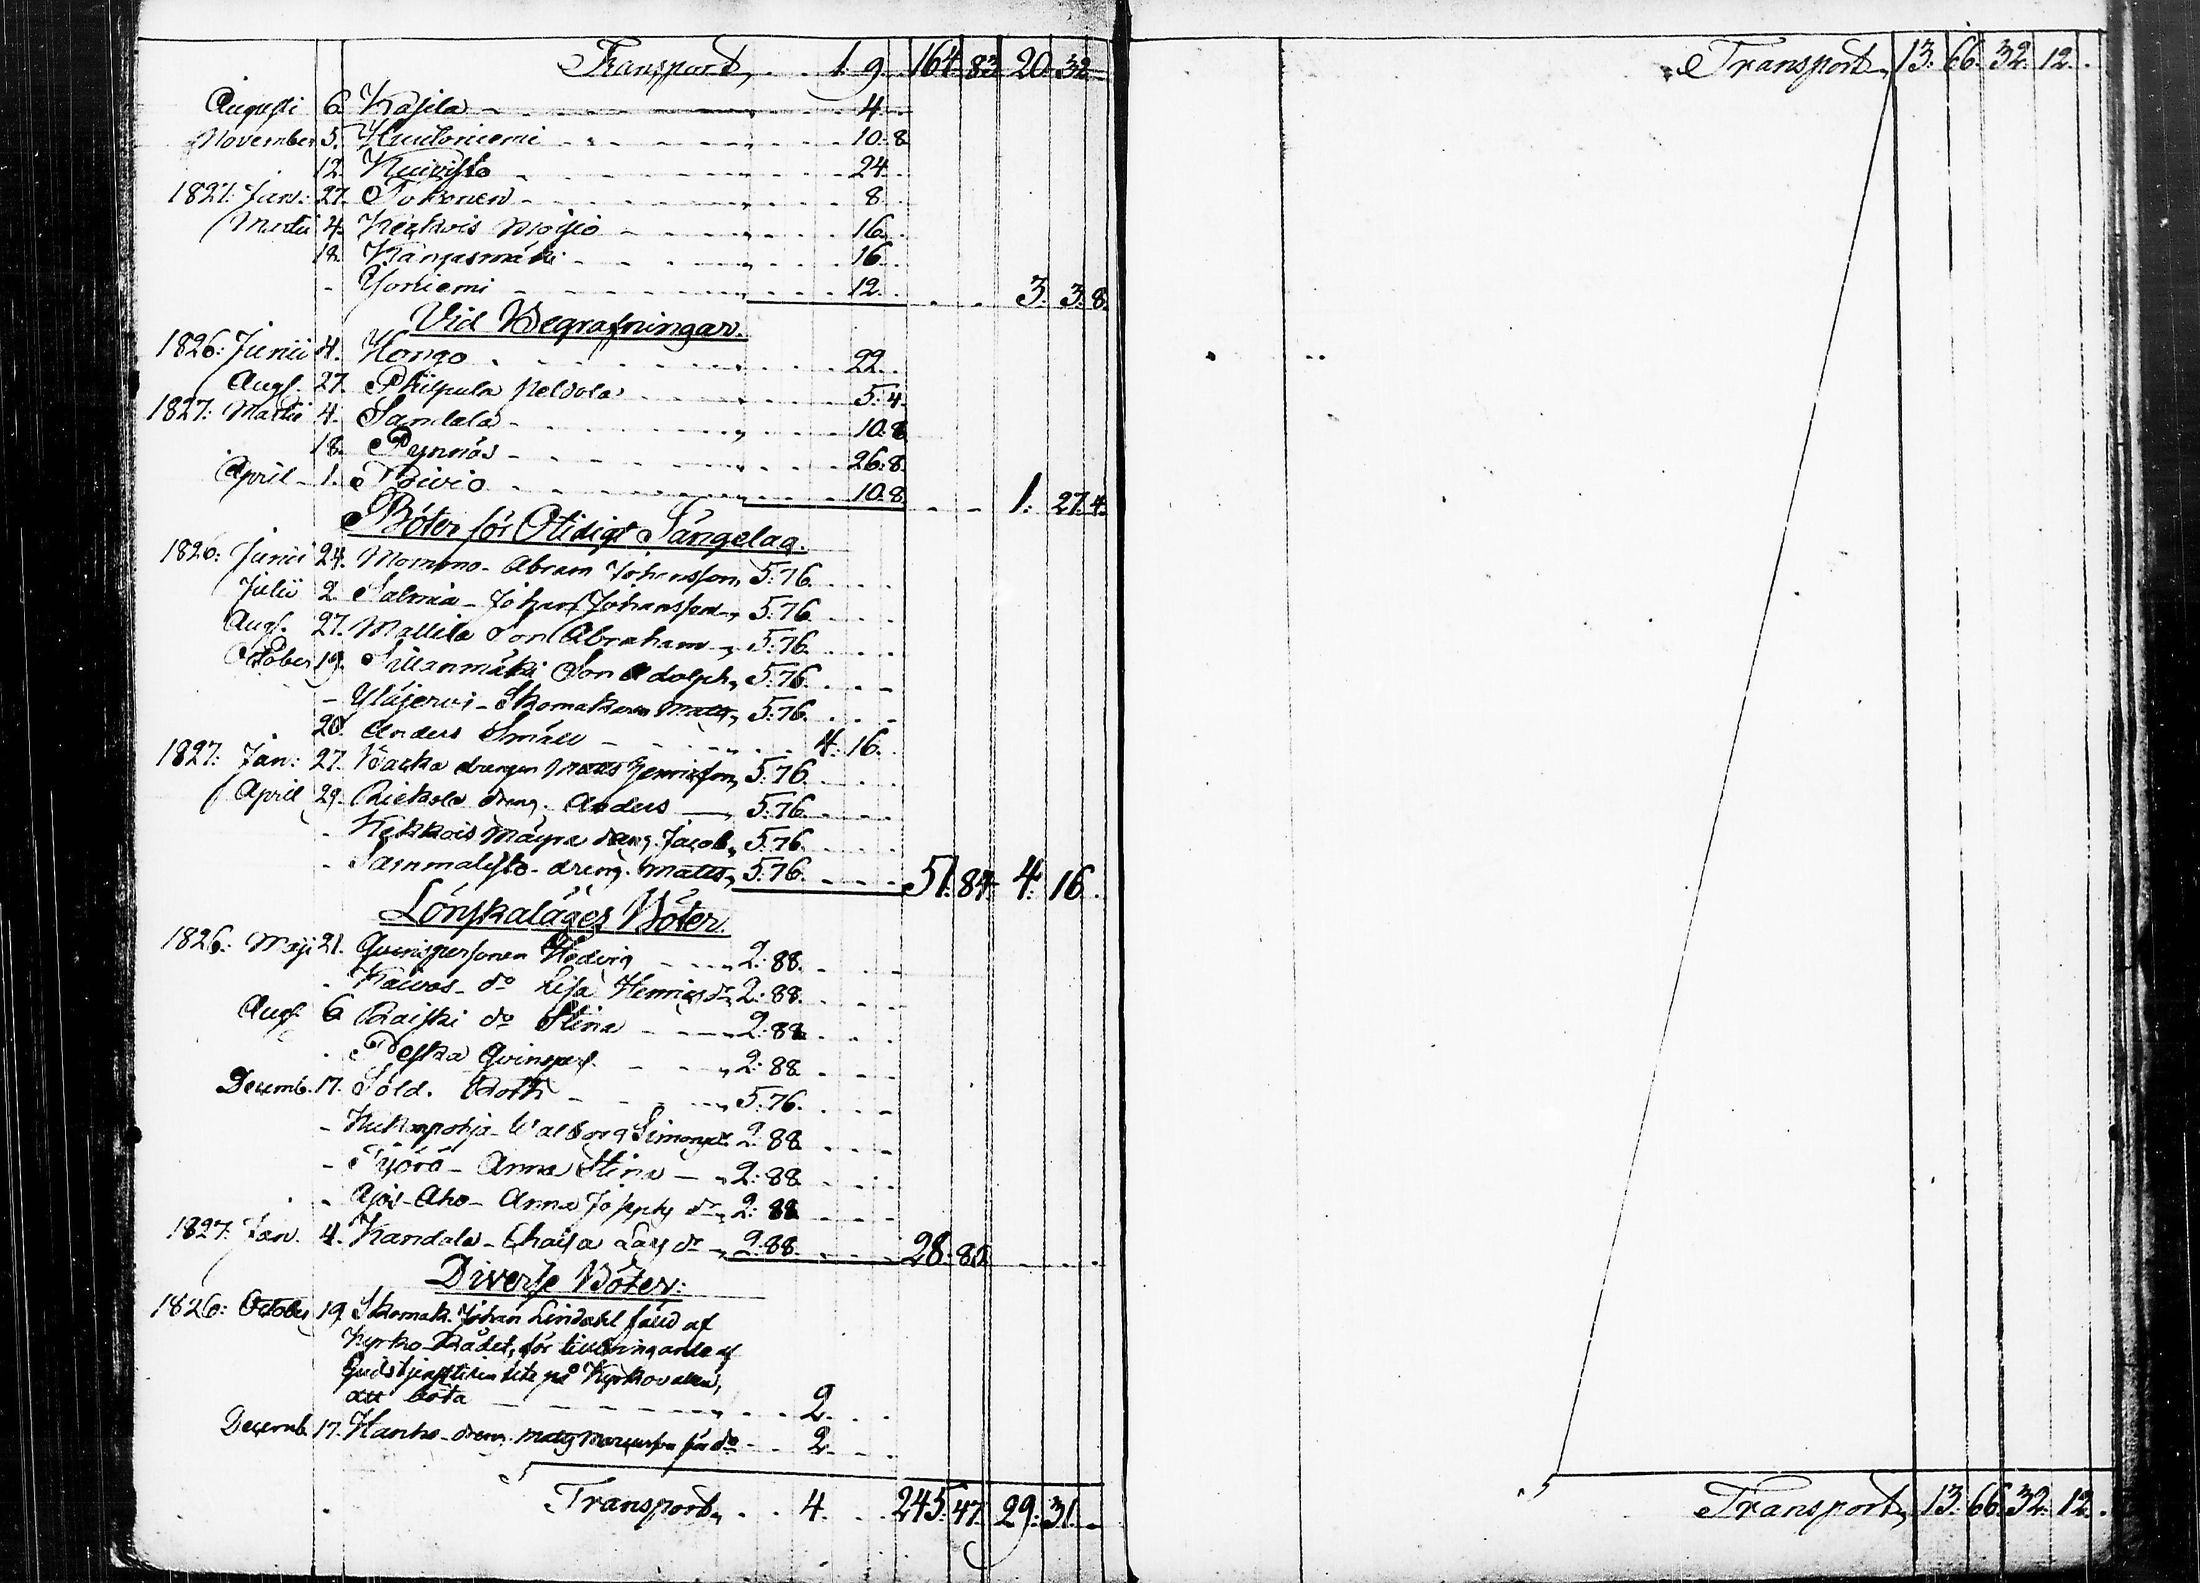 Transport, . . 1. 9. 164. 83. 20. 32.
Augusti 6. Kasila - 4.
November 5. Kuutoniemi - 10. 8.
12. Kuivisto - 24.
1827: Jan: 27. Tokonen - 8.
Martii 4. Keckois Moisio - 16.
18. Kangasmäki - 16.
- Yoniemi - 12. 3. 3. 8.
Vid Begrafningar.
1826: Junii 4. Hongo - 22.
Augs. 27. Philpula Peldola 5. 4.
1827: Martii 4. Santala - 10. 8.
18. Pynnös - 26. 8.
April - 1. Toivio - 10. 8. 1. 27. 4.
Böter för Otidigt Sängelag.
1826: Junii 24. Mommo - Abram Johansson, 5: 76.
Julii 2. Salmia - Johan Johansson, 5: 76.
Augs. 27. Mallila Son Abraham, 5: 76.
October 19. Sillanmäki Son Adolph, 5: 76.
- Yläjervi - Skomakaren Matts, 5: 76.
20. Anders Småll - 4. 16.
1827: Jan: 27. Backa drengen Matts Henricsson, 5: 76.
April 29. Rickola dreng. Anders 5: 76.
- Kekkois Mäyra dreng. Jacob, 5: 76.
- Sammalisto - dreng. Matts, 5: 76. 51. 84. 4. 16.
Lönskaläges Böter.
1826: Maji 21. Qvinspersonen Hedvig 2: 88.
- Kaivos - do Lisa Henricsdr, 2: 88.
Augs. 6. Raiski do Stina 2: 88.
- Peska Qvinspers. 2: 88.
Decemb. 17. Sold. Roth 5: 76.
- Kukonpohja - Walborg Simonsdr 2: 88.
- Työrö - Anna Stina 2: 88.
- Ajos-Aho - Anna Josephs dr, 2: 88.
1827: Jan. 4. Kandala - Chaisa Lars dr, 2: 88. 28. 80.
Diverse Böter:
1826: October 19. Skomak. Johan Lindahl fäld af
Kyrko-Rådet, för tillbringande af
Gudstjensttiden ute på Kyrkovallen,
att böta - 2.
Decemb. 17. Hanho - dreng. Matts Marcusson för do - 2.
Transport, . . 4. 245. 47. 29. 31.
Transport, 13. 66. 32. 12.
Transport, 13. 66. 32. 12.